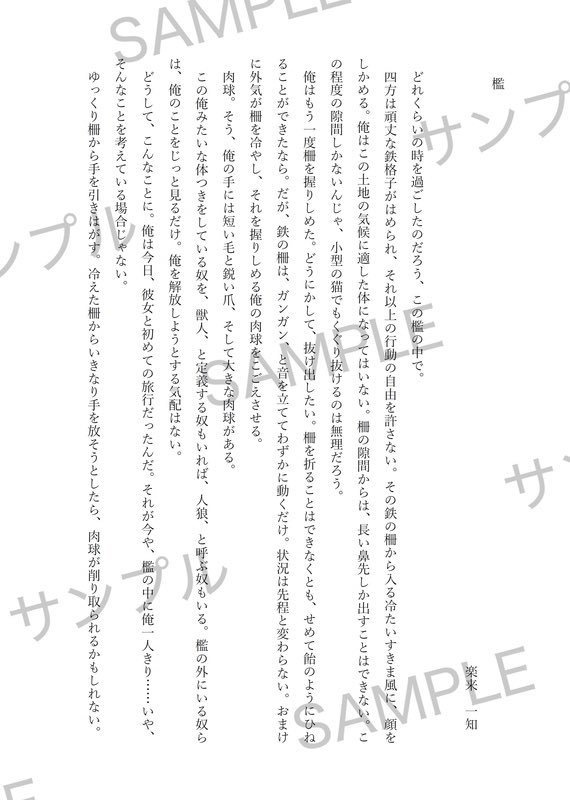 檻
楽来 一知
どれくらいの時を過ごしたのだろう、この檻の中で。
四方は頑丈な鉄格子がはめられ、それ以上の行動の自由を許さない。その鉄の柵から入る冷たいすきま風に、顔を
しかめる。俺はこの土地の気候に適した体になってはいない。柵の隙間からは、長い鼻先しか出すことはできない。こ
の程度の隙間しかないんじゃ、小型の猫でもくぐり抜けるのは無理だろう。
俺はもう一度柵を握りしめた。どうにかして、抜け出したい。柵を折ることはできなくとも、せめて飴のようにひね
ることができたなら。だが、鉄の柵は、ガンガン、と音を立ててわずかに動くだけ。状況は先程と変わらない。おまけ
に外気が柵を冷やし、それを握りしめる俺の肉球をこごえさせる。
肉球。そう、俺の手には短い毛と鋭い爪、そして大きな肉球がある。
この俺みたいな体つきをしている奴を、獣人、と定義する奴もいれば、人狼、と呼ぶ奴もいる。檻の外にいる奴ら
は、俺のことをじっと見るだけ。俺を解放しようとする気配はない。
どうして、こんなことに。俺は今日、彼女と初めての旅行だったんだ。それが今や、檻の中に俺一人きり……いや、
そんなことを考えている場合じゃない。
ゆっくり柵から手を引きはがす。冷えた柵からいきなり手を放そうとしたら、肉球が削り取られるかもしれない。
SAMPLE
サンプル
サンプル
SAMPLE
サン
サンプル
SAMPLE